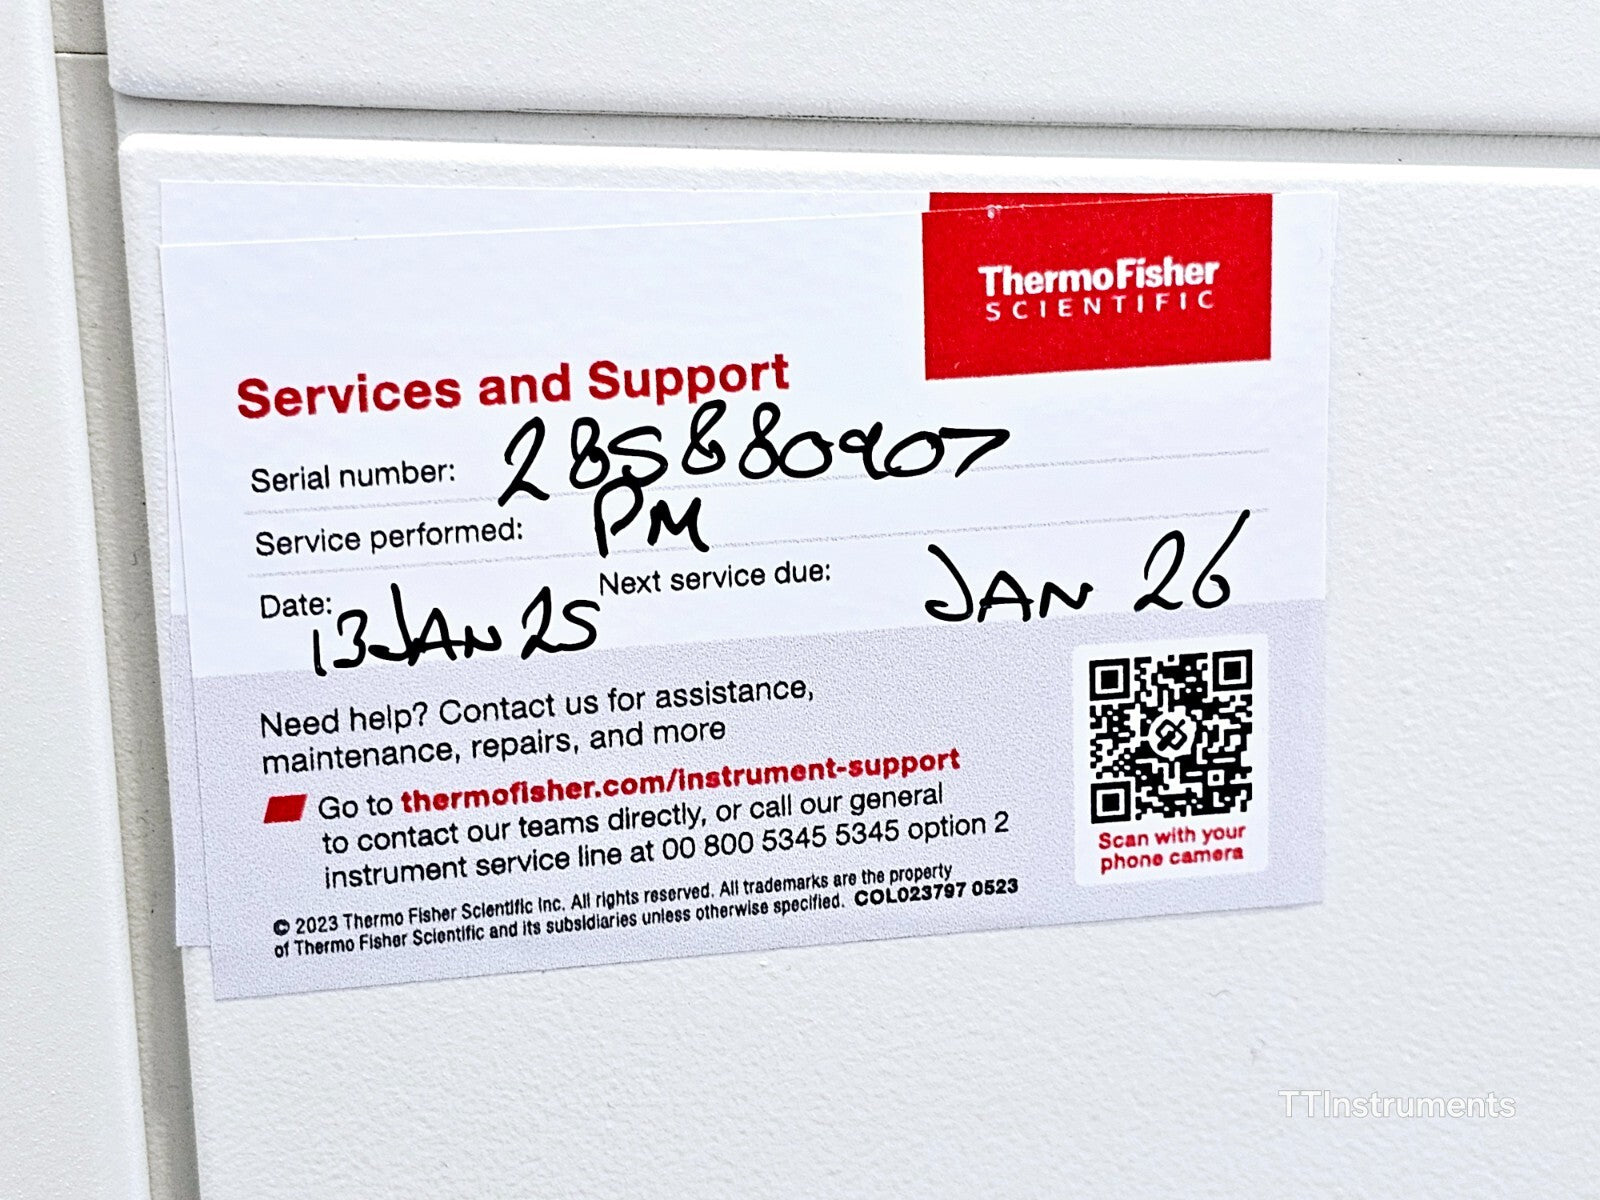 ThermoFisher
SCIENTIFIC
Services and Support
Serial number: 285880907
Service performed: PM
Date: 13 JAN 25 Next service due: JAN 26
Need help? Contact us for assistance,
maintenance, repairs, and more
Go to thermofisher.com/instrument-support
to contact our teams directly, or call our general
instrument service line at 00 800 5345 5345 option 2
© 2023 Thermo Fisher Scientific Inc. All rights reserved. All trademarks are the property
of Thermo Fisher Scientific and its subsidiaries unless otherwise specified. COL023797 0523
Scan with your
phone camera
TTInstruments